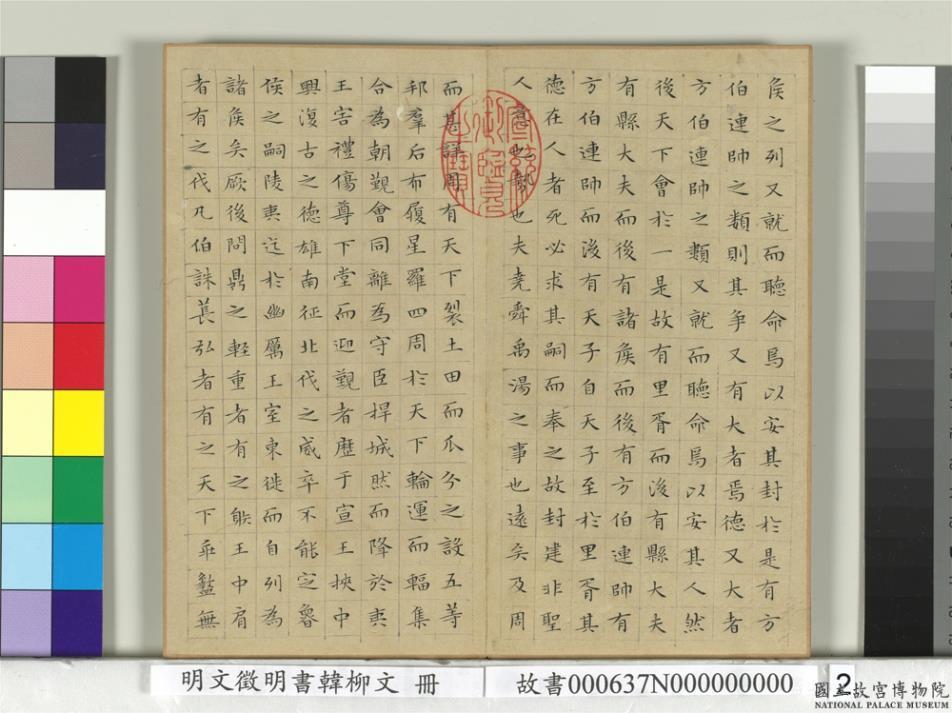 矦之列又就而聽命焉以安其封於是有方
伯連帥之類則其争又有大者焉德又大者
方伯連帥之類又就而聽命焉以安其人然
後天下會於一是故有里胥而後有縣大夫
有縣大夫而後有諸矦而後有方伯連帥有
方伯連帥而後有天子自天子至於里胥其
德在人者死必求其嗣而奉之故封建非聖
人意也勢也夫堯舜禹湯之事也遠矣及周
而甚詳周有天下裂土田而瓜分之設五等
邦羣后布履星羅四周於天下輪運而輻集
合為朝覲會同離為守臣捍城然而降於夷
王害禮傷尊下堂而迎覲者歴于宣王挾中
興復古之德雄南征北伐之威卒不能定魯
侯之嗣陵夷迄於幽厲王室東徙而自列為
諸矦矣厥後問鼎之軽重者有之䠶王中肩
者有之伐凡伯誅萇弘者有之天下乖盭無
宣統御覽之寶
明文徵明書韓柳文 冊
故書000637N000000000
2
國立故宮博物院
NATIONAL PALACE MUSEUM